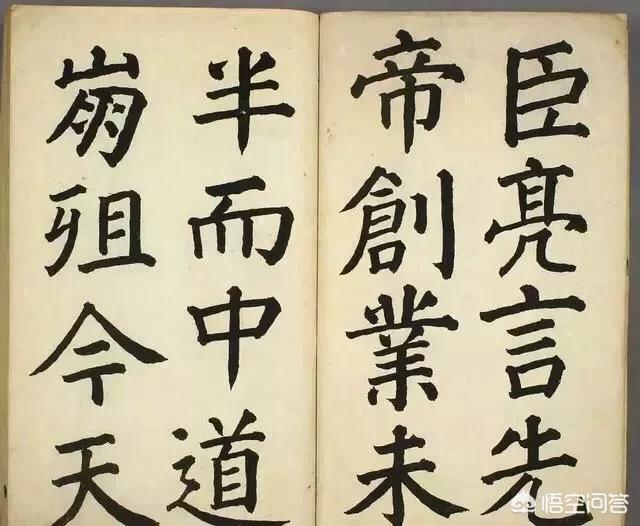 臣亮言先
帝創業未
半而中道
崩殂今天
悟空问答